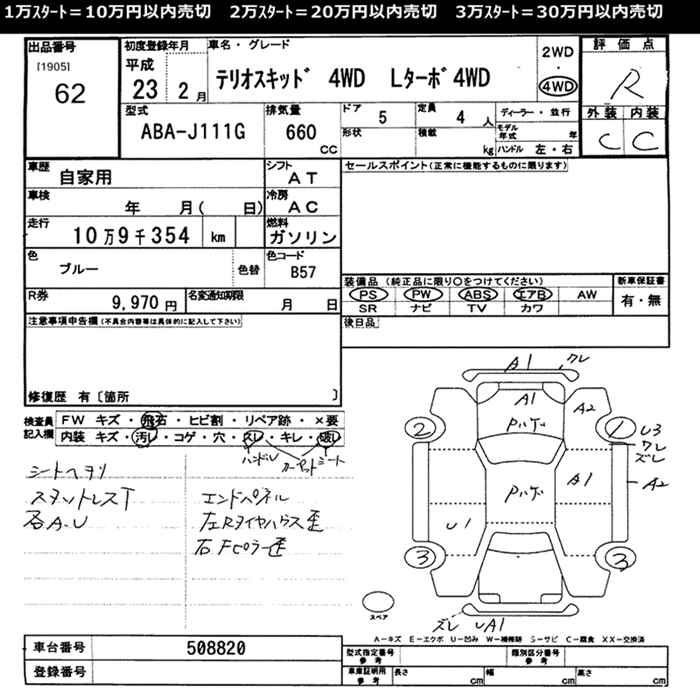 1万スタート＝10万円以内売切　2万スタート＝20万円以内売切　3万スタート＝30万円以内売切
出品番号
[1905]
62
初度登録年月
平成
23 2月
車名・グレード
テリオスキッド 4WD Lターボ4WD
2WD
・
4WD
評価点
R
外装 内装
C C
型式
ABA-J111G
排気量
660
CC
ドア 5
定員 4 人
形状
積載 kg
ディーラー・並行
モデル年式 年
ハンドル 左・右
車歴
自家用
シフト
AT
車検
年 月( 日)
冷房
AC
走行
10万9千354 km
燃料
ガソリン
色
ブルー
色替
色コード
B57
R券
9,970 円
名変通知期限
月 日
セールスポイント(正常に機能するものに限ります)
装備品 (純正品に限り○をつけてください)
新車保証書
PS PW ABS エアB AW
SR ナビ TV カワ
有・無
後日品
注意事項申告欄(不具合内容等は具体的に記入して下さい)
修復歴 有〔箇所 〕
検査員
記入欄
FW キズ・飛石・ヒビ割・リペア跡・×要
内装 キズ・汚レ・コゲ・穴・スレ・キレ・破レ
ハンドル カーペットシート
シートヘタリ
スタットレスT
各A.U
エンドパネル
左Rタイヤハウス歪
右Fピラー歪
A1 クレ
A1
A2
パハゲ
2
1
U3
ワレ
ズレ
パハゲ
A1
A2
U1
3
3
スペア
ズレ UA1
A－キズ E－エクボ U－凹み W－補修跡 S－サビ C－腐食 XX－交換済
車台番号
508820
登録番号
型式指定番号
参考
類別区分番号
参考
車庫証明用
参考
長さ cm
幅 cm
高さ cm